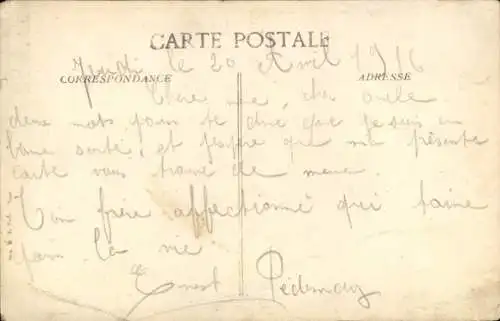 CARTE POSTALE
Jeudi le 20 Avril 1916
CORRESPONDANCE
ADRESSE
Chère mie, cher oncle
deux mots pour te dire que je suis en
bonne santé, et j'espère que ma présente
carte vous trouve de meme.
Ton frère affectionné qui t'aime
pour la vie
Ernest Pédemay